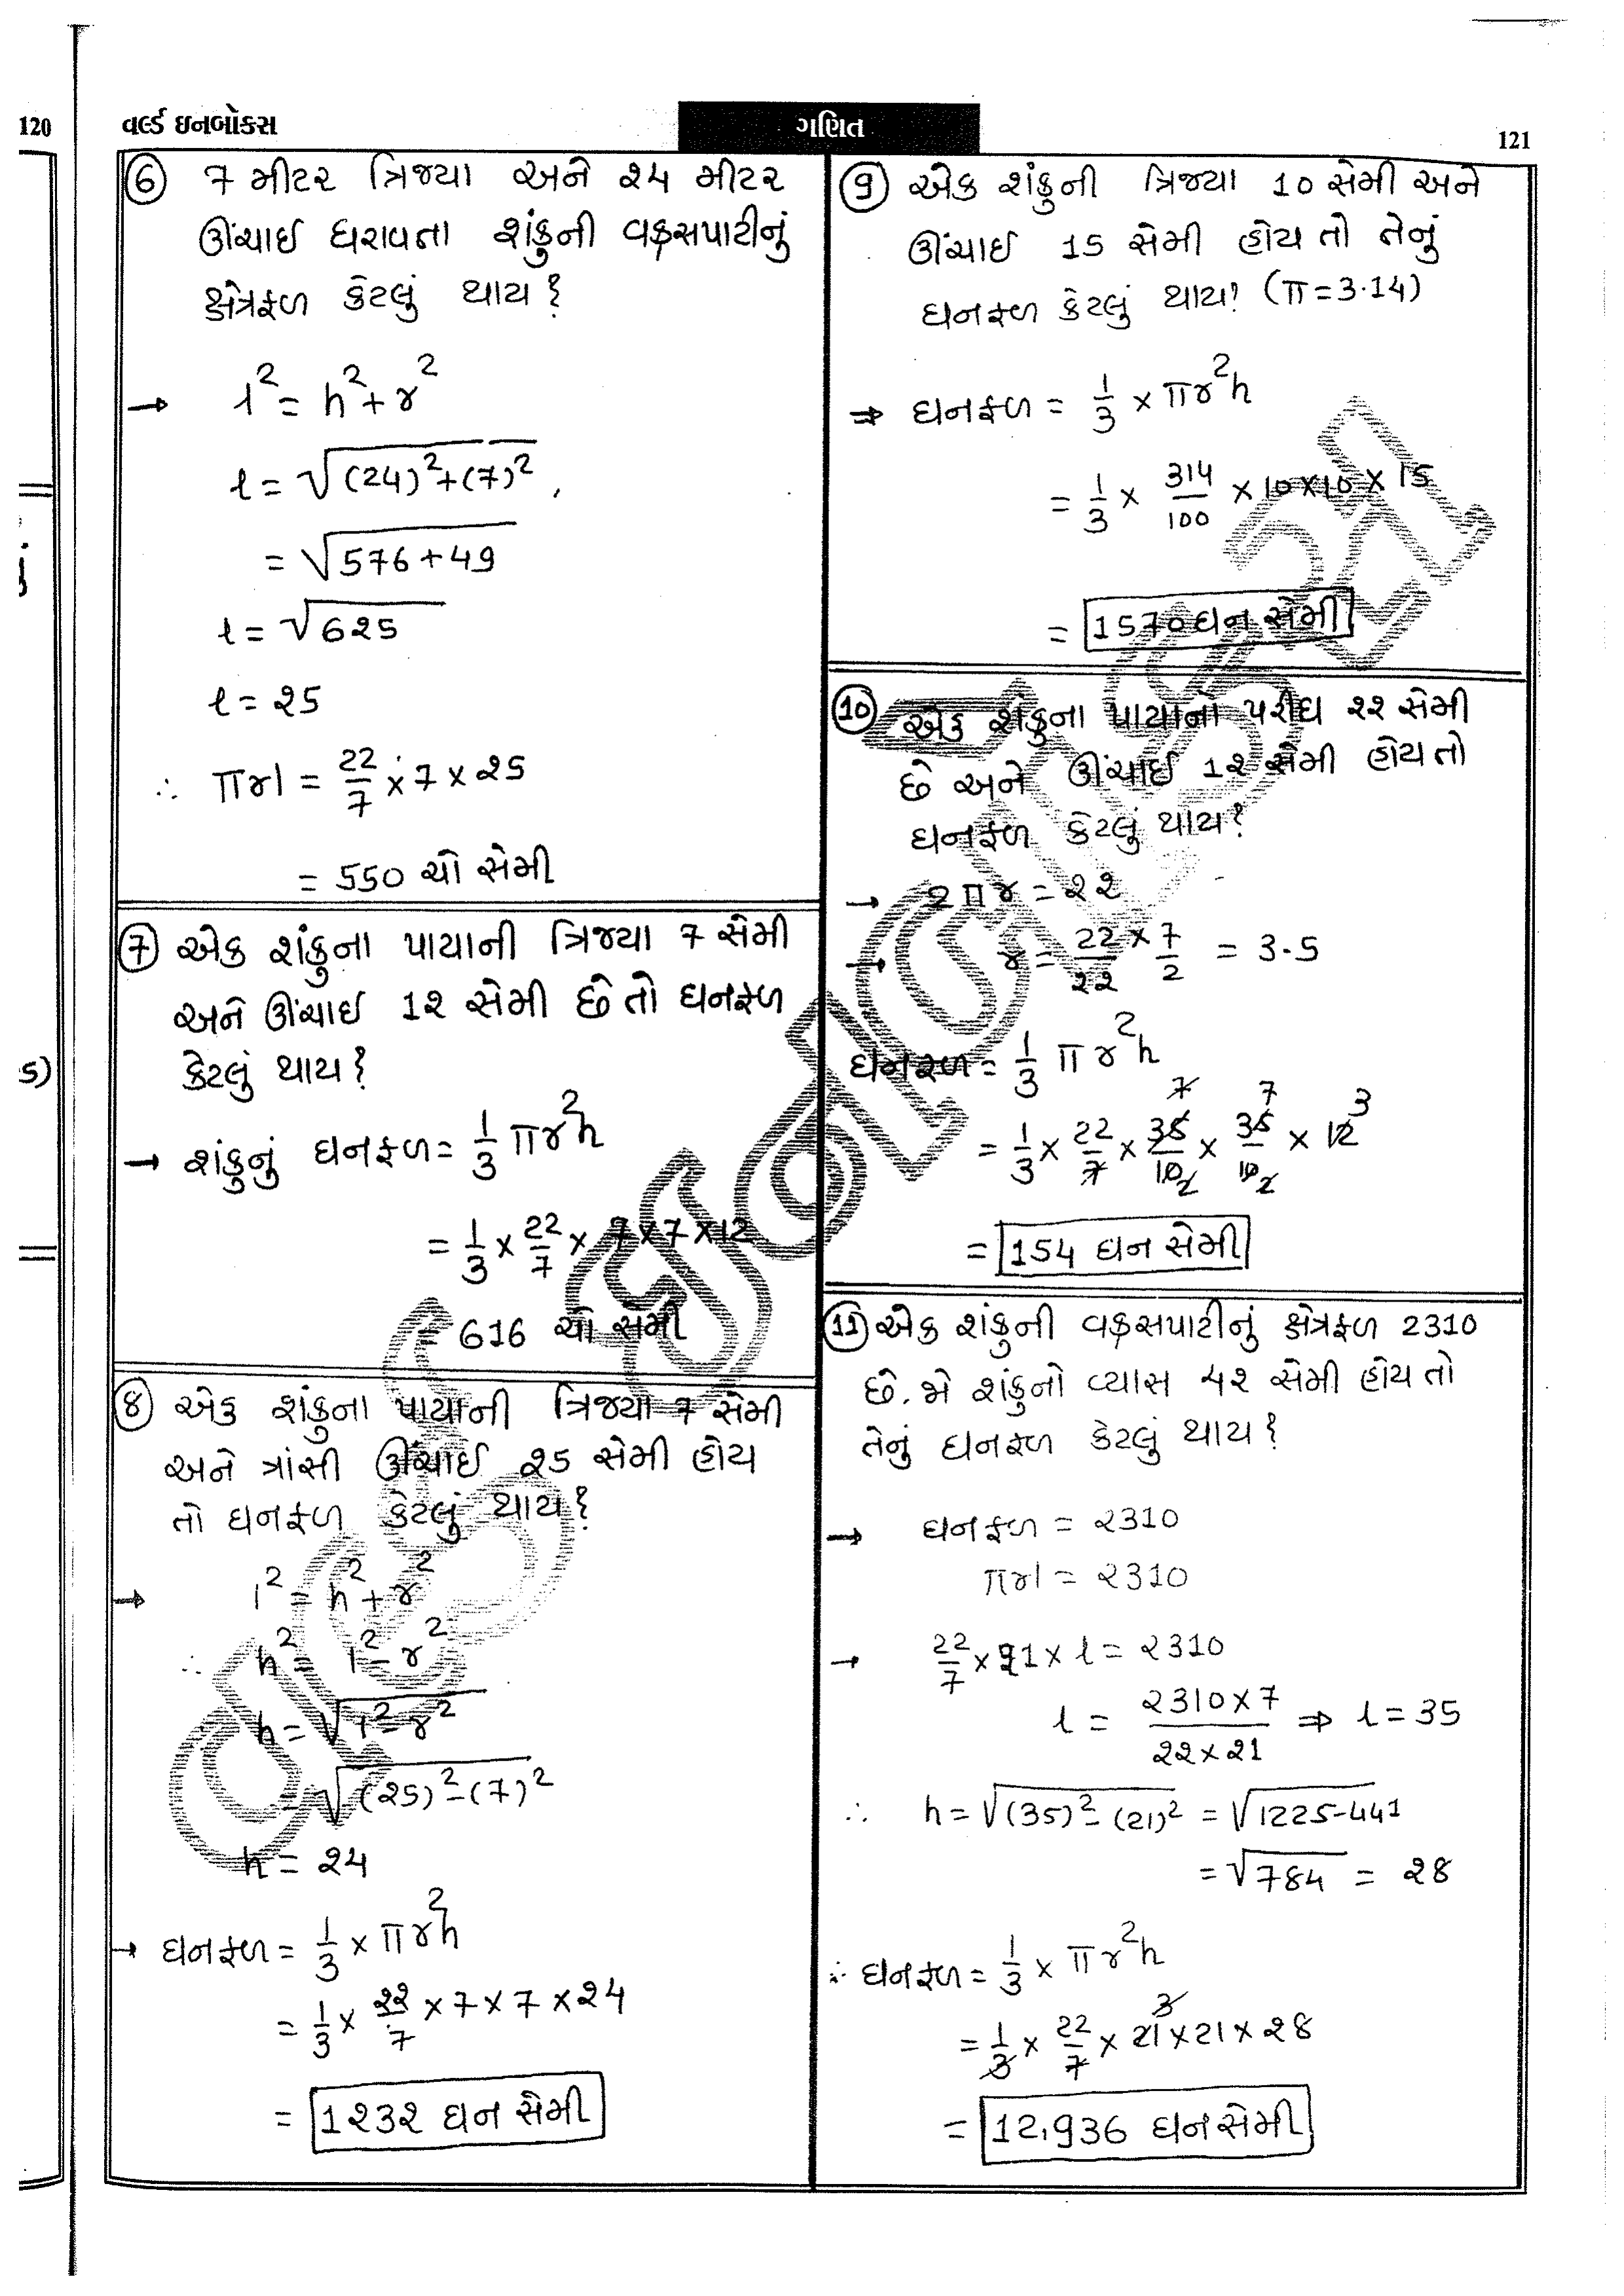 120
વર્લ્ડ ઇનબોક્સ
ગણિત
121
(6) 7 મીટર ત્રિજ્યા અને 24 મીટર
ઊંચાઈ ધરાવતા શંકુની વક્રસપાટીનું
ક્ષેત્રફળ કેટલું થાય?
→ l² = h² + r²
l = √(24)² + (7)²
= √576 + 49
l = √625
l = 25
∴ πrl = 22/7 × 7 × 25
= 550 ચો સેમી
(7) એક શંકુના પાયાની ત્રિજ્યા 7 સેમી
અને ઊંચાઈ 12 સેમી છે તો ઘનફળ
કેટલું થાય?
→ શંકુનું ઘનફળ = 1/3 πr²h
= 1/3 × 22/7 × 7 × 7 × 12
= 616 ચો સેમી
(8) એક શંકુના પાયાની ત્રિજ્યા 7 સેમી
અને ત્રાંસી ઊંચાઈ 25 સેમી હોય
તો ઘનફળ કેટલું થાય?
→ l² = h² + r²
∴ h² = l² - r²
h = √l² - r²
= √(25)² - (7)²
h = 24
→ ઘનફળ = 1/3 × πr²h
= 1/3 × 22/7 × 7 × 7 × 24
= 1232 ઘન સેમી
(9) એક શંકુની ત્રિજ્યા 10 સેમી અને
ઊંચાઈ 15 સેમી હોય તો તેનું
ઘનફળ કેટલું થાય? (π = 3.14)
⇒ ઘનફળ = 1/3 × πr²h
= 1/3 × 314/100 × 10 × 10 × 15
= 1570 ઘન સેમી
(10) એક શંકુના પાયાનો પરીઘ 22 સેમી
છે અને ઊંચાઈ 12 સેમી હોય તો
ઘનફળ કેટલું થાય?
→ 2πr = 22
→ r = 22/22 × 7/2 = 3.5
ઘનફળ = 1/3 πr²h
7 7 3
= 1/3 × 22/7 × 35/10 × 35/10 × 12
2 2
= 154 ઘન સેમી
(11) એક શંકુની વક્રસપાટીનું ક્ષેત્રફળ 2310
છે. જો શંકુનો વ્યાસ 42 સેમી હોય તો
તેનું ઘનફળ કેટલું થાય?
→ ઘનફળ = 2310
πrl = 2310
→ 22/7 × 21 × l = 2310
l = 2310 × 7 / 22 × 21 ⇒ l = 35
∴ h = √(35)² - (21)² = √1225 - 441
= √784 = 28
∴ ઘનફળ = 1/3 × πr²h
3
= 1/3 × 22/7 × 21 × 21 × 28
= 12,936 ઘન સેમી